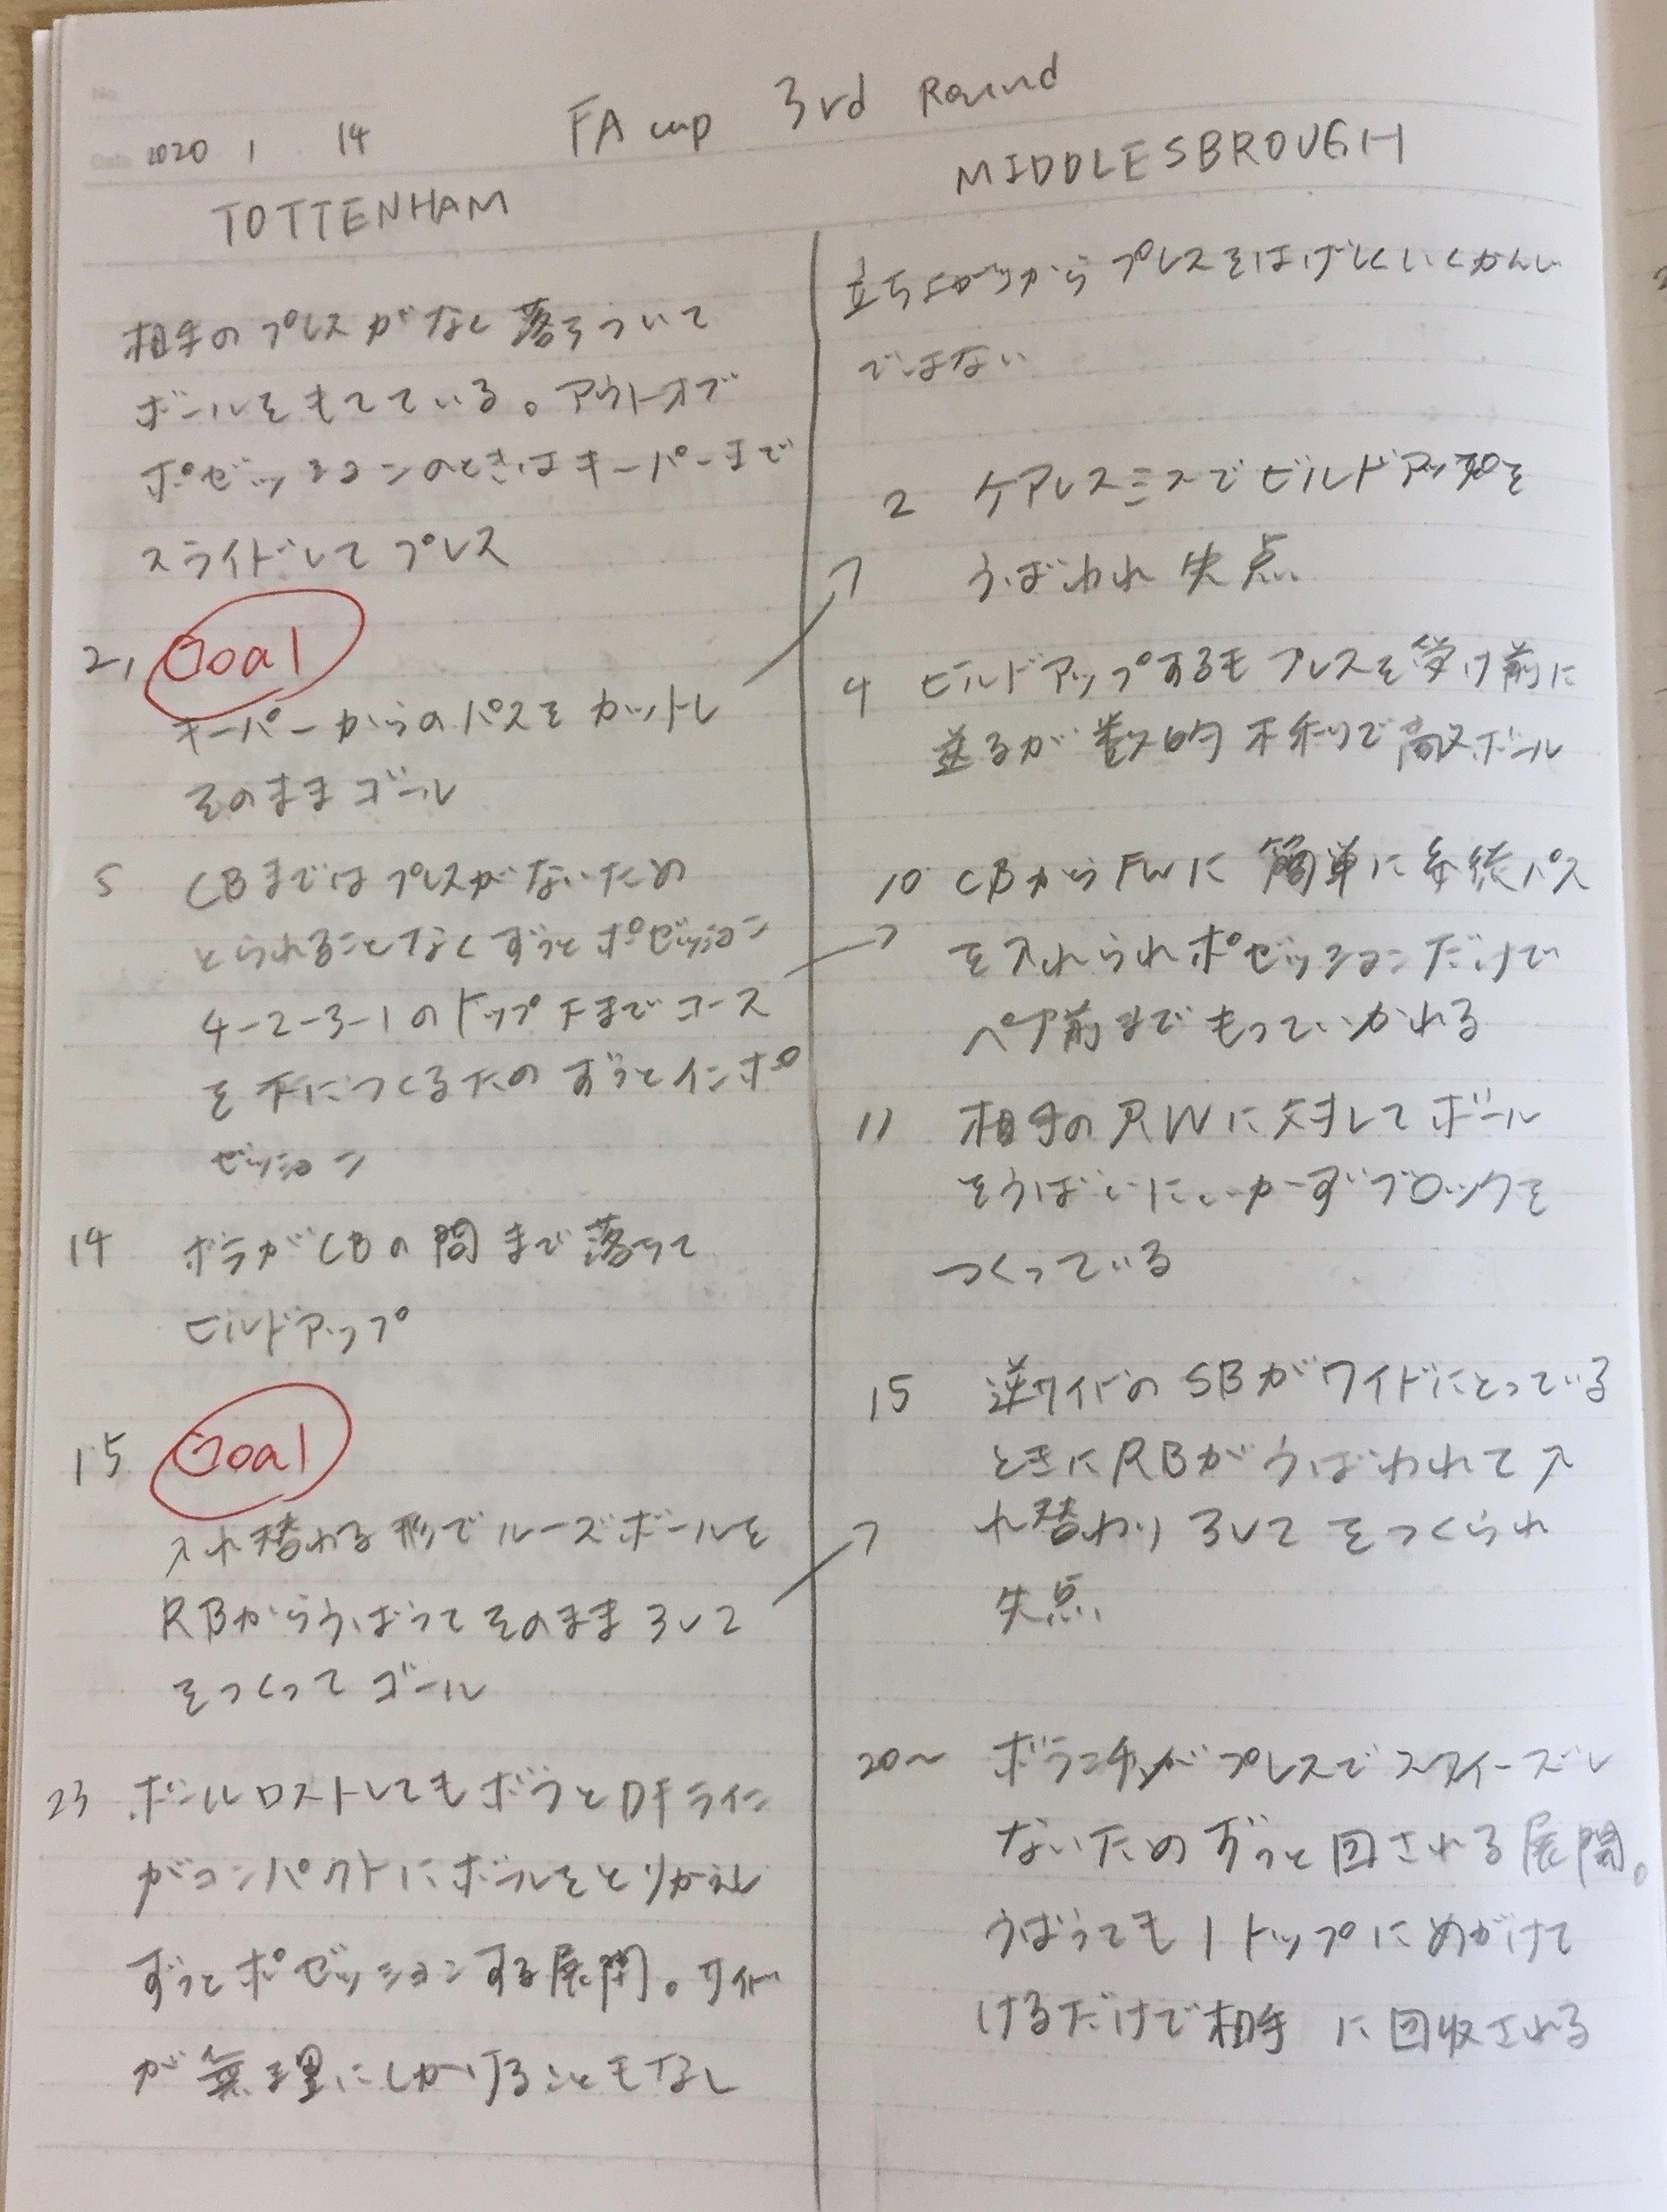 No.
Date 2020 1 14
FA cup 3rd Round
TOTTENHAM
相手のプレスがなく落ちついて
ボールをもてている。アウトオブ
ポゼッションのときはキーパーまで
スライドしてプレス
2, Goal
キーパーからのパスをカットし
そのままゴール
5 CBまではプレスがないため
とられることなくずっとポゼッション
4-2-3-1のトップ下までコース
を下につくるためずっとインポ
ゼッション
14 ボラがCBの間まで落ちて
ビルドアップ
15 Goal
入れ替わる形でルーズボールを
RBからうばってそのまま3v2
をつくってゴール
23 ボールロストしてもボラとDFライン
がコンパクトにボールをとりかえし
ずっとポゼッションする展開。サイド
が無理にしかけることもなし
MIDDLESBROUGH
立ち上がりからプレスをはげしくいくかんじ
ではない
2 ケアレスミスでビルドアップを
うばわれ失点
4 ビルドアップするもプレスを受け前に
送るが数的不利で敵ボール
10 CBからFWに簡単に縦パス
を入れられポゼッションだけで
ペナ前までもっていかれる
11 相手のRWに対してボール
をうばいにいかずブロックを
つくっている
15 逆サイドのSBがワイドにとっている
ときにRBがうばわれて入
れ替わり3v2をつくられ
失点
20〜 ボランチがプレスでスクイーズし
ないためずっと回される展開。
うばっても1トップにめがけて
けるだけで相手に回収される